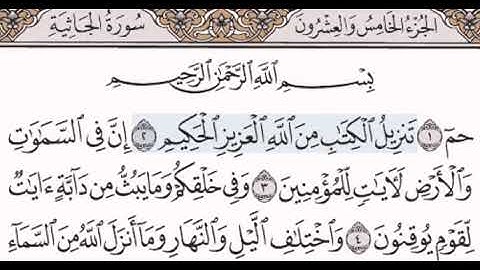 الجزء الخامس والعشرون سورة الجاثية
بِسْمِ ٱللَّهِ ٱلرَّحْمَٰنِ ٱلرَّحِيمِ
حمٓ ١ تَنزِيلُ ٱلْكِتَٰبِ مِنَ ٱللَّهِ ٱلْعَزِيزِ ٱلْحَكِيمِ ٢ إِنَّ فِى ٱلسَّمَٰوَٰتِ
وَٱلْأَرْضِ لَءَايَٰتٍ لِّلْمُؤْمِنِينَ ٣ وَفِى خَلْقِكُمْ وَمَا يَبُثُّ مِن دَآبَّةٍ ءَايَٰتٌ
لِّقَوْمٍ يُوقِنُونَ ٤ وَٱخْتِلَٰفِ ٱلَّيْلِ وَٱلنَّهَارِ وَمَآ أَنزَلَ ٱللَّهُ مِنَ ٱلسَّمَآءِ